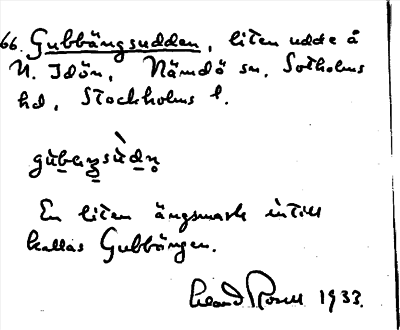 66. Gubbängsudden, liten udde å
N. Idön, Nämdö sn, Sotholms
hd, Stockholms l.
En liten ängsmark intill
kallas Gubbängen.
1933.